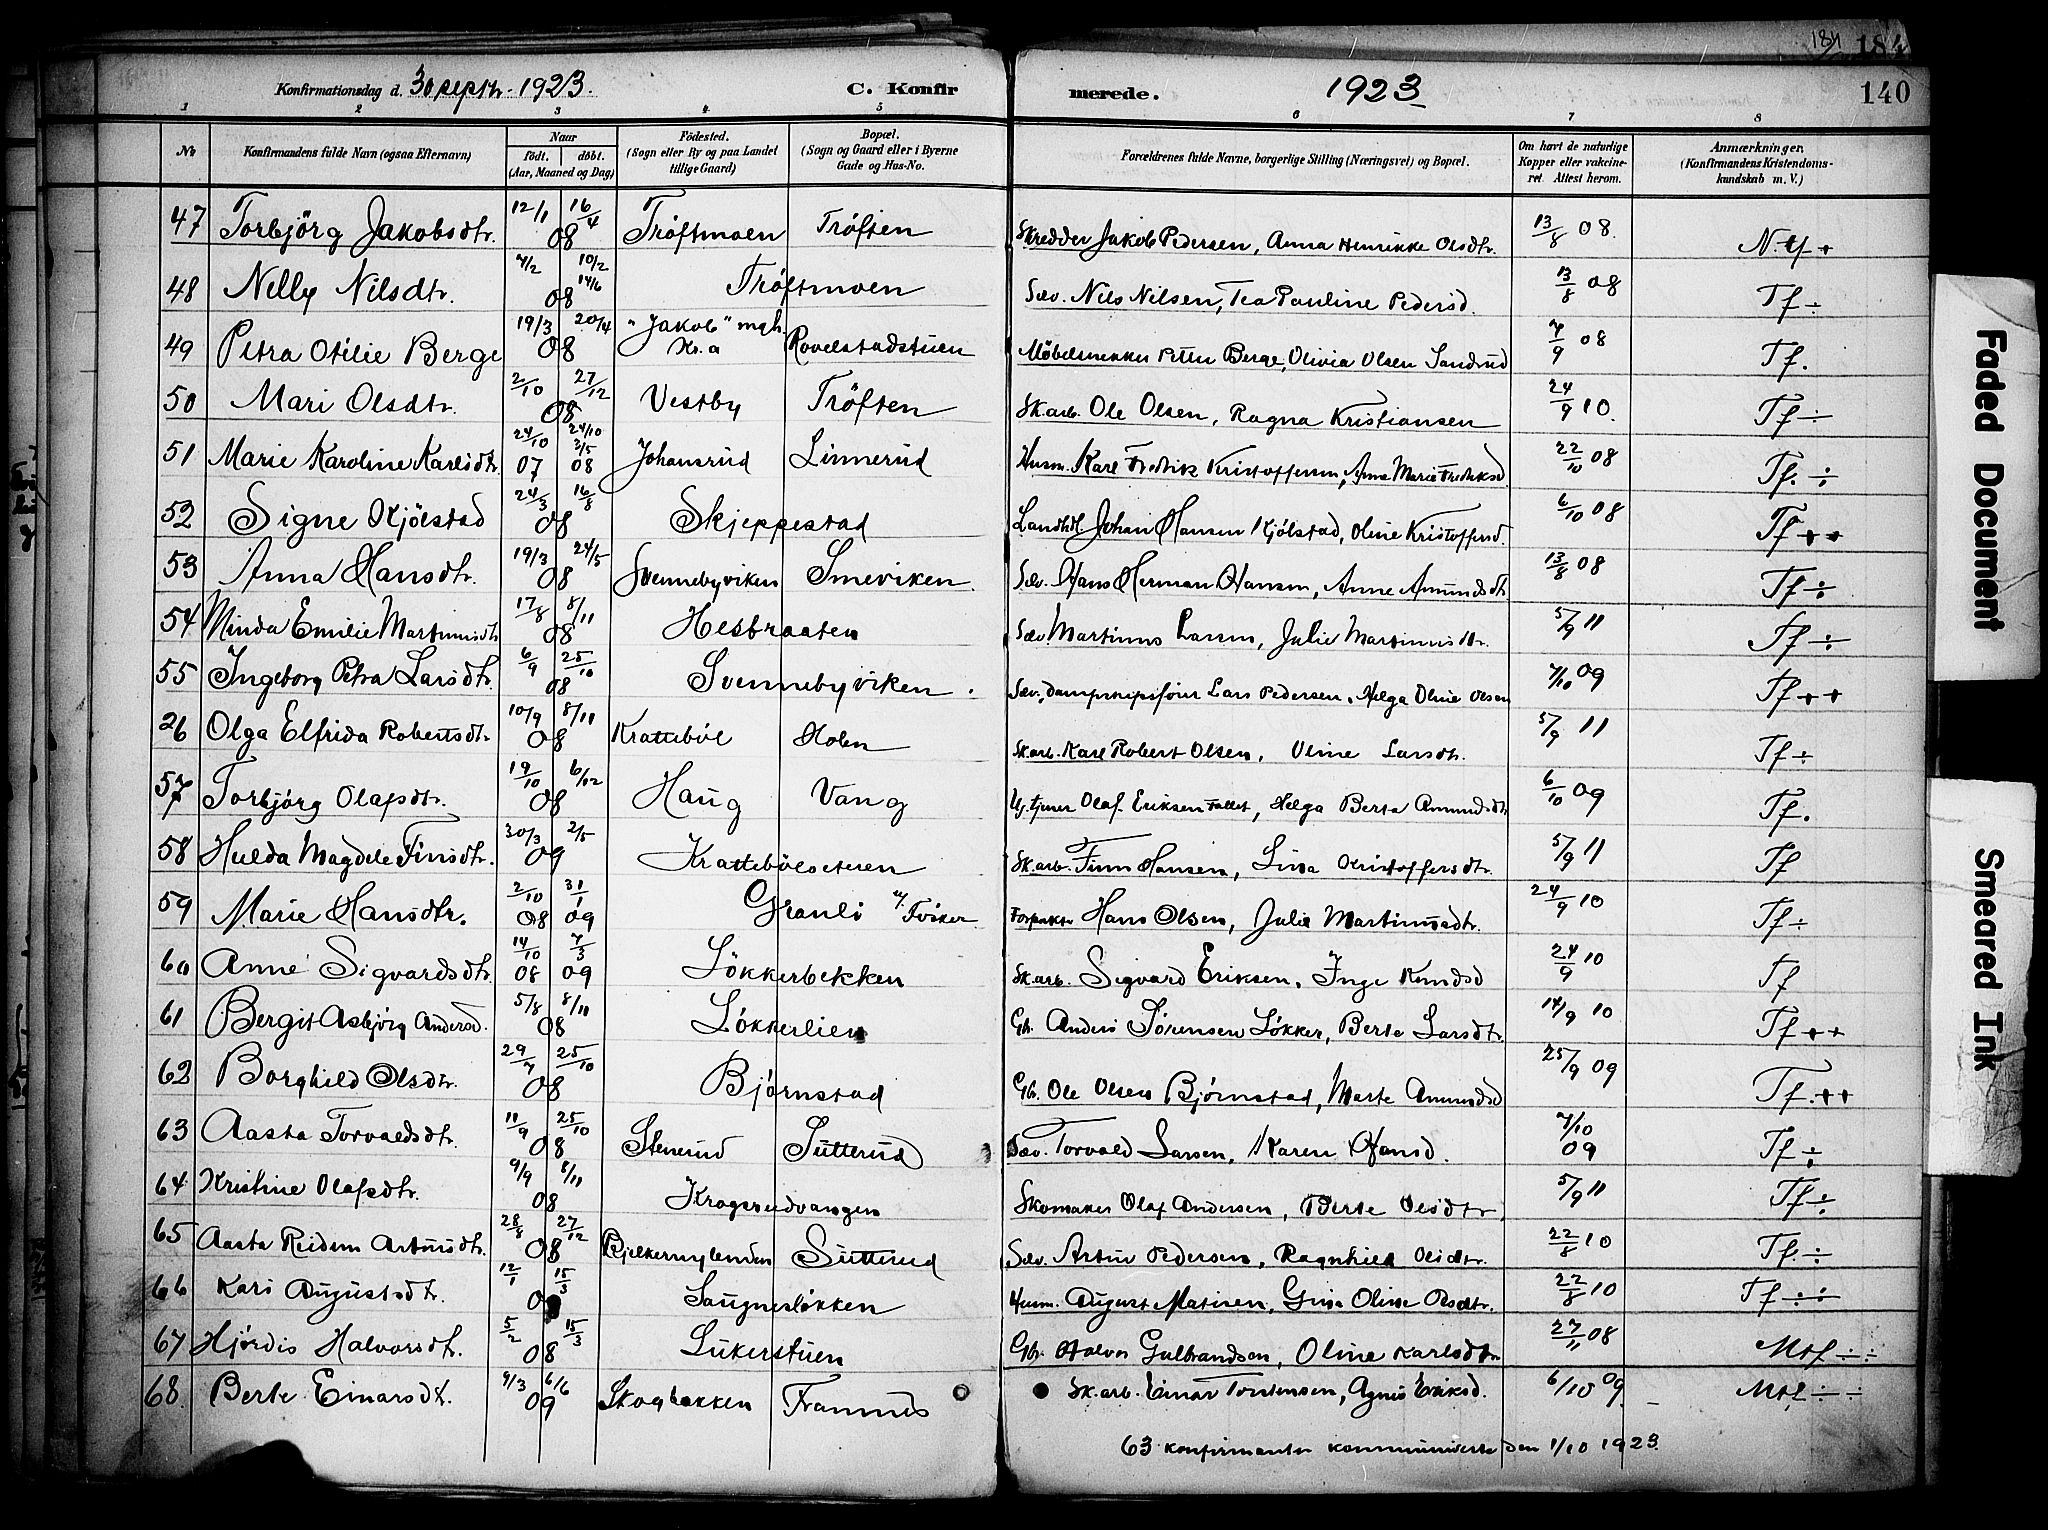 184 184
Konfirmationsdag d. 30 septbr. 1923. C. Konfirmerede. 1923 140
1 2 3 4 5 6 7 8
No Konfirmandens fulde Navn (ogsaa Efternavn) Naar födt. döbt. (Aar, Maaned og Dag) Födested. (Sogn eller By og paa Landet tillige Gaard) Bopæl. (Sogn og Gaard eller i Byerne Gade og Hus-No. Forældrenes fulde Navne, borgerlige Stilling (Næringsvei) og Bopæl. Om havt de naturlige Kopper eller vakcineret. Attest herom. Anmærkninger. (Konfirmandens Kristendomskundskab m. V.)
47 Torbjörg Jakobsdtr. 12/1 16/4 08 Tröftmoen Tröften Skredder Jakob Pedersen, Anna Henrikke Olsdtr. 13/8 08.
48 Nelly Nilsdtr. 7/2 10/2 14/6 08 Tröftmoen Sæv. Nils Nilsen, Tea Pauline Pedersd. 13/8 08 Tf ÷
49 Petra Otilie Berge 19/3 20/4 08 "Jakob" mgh. Kr.a Rovelstadstuen Möbelsnekker Petter Berge, Olivia Olsen Sandrud 7/9 08 Tf.
50 Mari Olsdtr. 2/10 27/12 08 Vestby Tröften Sk.arb. Ole Olsen, Ragna Kristiansen 24/9 10. Tf ÷
51 Marie Karoline Karlsdtr. 24/10 07 24/10 3/5 08 Johansrud Linnerud Husm. Karl Fredrik Kristoffersen, Anna Marie Fredriksd. 22/10 08 Tf. ÷
52 Signe Kjölstad 24/3 16/8 08 Skjeppestad Landh. Johan Hansen Kjölstad, Oline Kristoffersd. 6/10 08 Tf ++
53 Anna Hansdtr. 19/3 24/5 08 Svennebyviken Smeviken. Sæv. Hans Herman Hansen, Anne Amundsdtr. 13/8 08 Tf ÷
54 Minda Emilie Martinusdtr. 17/8 8/11 08 Hesbraaten Sæv Martinus Larsen, Julie Martinusdtr. 5/9 11 Tf ÷
55 Ingeborg Petra Larsdtr. 6/9 25/10 08 Svennebyviken. Sæv. dampskipsförer Lars Pedersen, Helga Oline Olsen 7/10 09 Tf ++
26 Olga Elfrida Robertsdtr. 10/9 8/11 08 Kratteböl Holen Sk.arb. Karl Robert Olsen, Oline Larsdtr. 5/9 11 Tf ÷
57 Torbjörg Olafsdtr. 19/10 6/12 08 Haug Vang Olaf Eriksen Fallet, Helga Berta Amundsdtr 6/10 09 Tf.
58 Hulda Magdele Finsdtr. 30/3 2/5 09 Krattebölseteren Sk.arb. Finn Hansen, Lina Kristoffersdtr. 5/9 11 Tf
59 Marie Hansdtr. 2/10 08 31/1 09 Granli Forpakter Hans Olsen, Julie Martinusdtr. 24/9 10 Tf ÷
60 Anne Sigvardsdtr. 14/10 08 7/3 09 Lökkerbekken Sk.arb. Sigvard Eriksen, Inge Knudsd 24/9 10 Tf
61 Bergit Asbjörg Andersd. 5/8 8/11 08 Lökkerlien Gbr. Anders Sörensen Lökker, Berte Larsdtr. 14/9 10 Tf ++
62 Borghild Olsdtr. 29/7 25/10 08 Björnstad Gbr. Ole Olsen Björnstad, Marte Amundsd 25/9 09 Tf. ++
63 Aasta Torvaldsdtr. 11/9 25/10 08 Stenerud Sutterud Sæv. Torvald Larsen, Karen Hansd. 7/10 09 Tf ÷
64 Kristine Olafsdtr. 9/9 8/11 08 Krogsrudvangen Skomaker Olaf Andersen, Berte Olsdtr. 5/9 11 Tf ÷
65 Aasta Reidun Artursdtr. 28/8 27/12 08 Bjelkernylenden Sutterud Sæv. Artur Pedersen, Ragnhild Olsdtr. 22/8 10 Tf. ÷
66 Kari Augustsdtr. 12/1 15/3 Saugneslökken Husm. August Matisen, Gina Oline Olsdtr. 22/8 10 Tf ÷÷
67 Hjördis Halvorsdtr. 5/2 15/3 08 Lukerstuen Gbr. Halvor Gulbrandsen, Oline Karlsdtr 27/11 08 Mtf ÷÷
68 Berte Einarsdtr. 9/3 6/6 09 Skogbakken Framnes Sk.arb. Einar Torstensen, Agnes Eriksd. 6/10 09 Mtf ÷÷
63 konfirmanter kommuniserte den 1/10 1923.
Faded Document
Smeared Ink